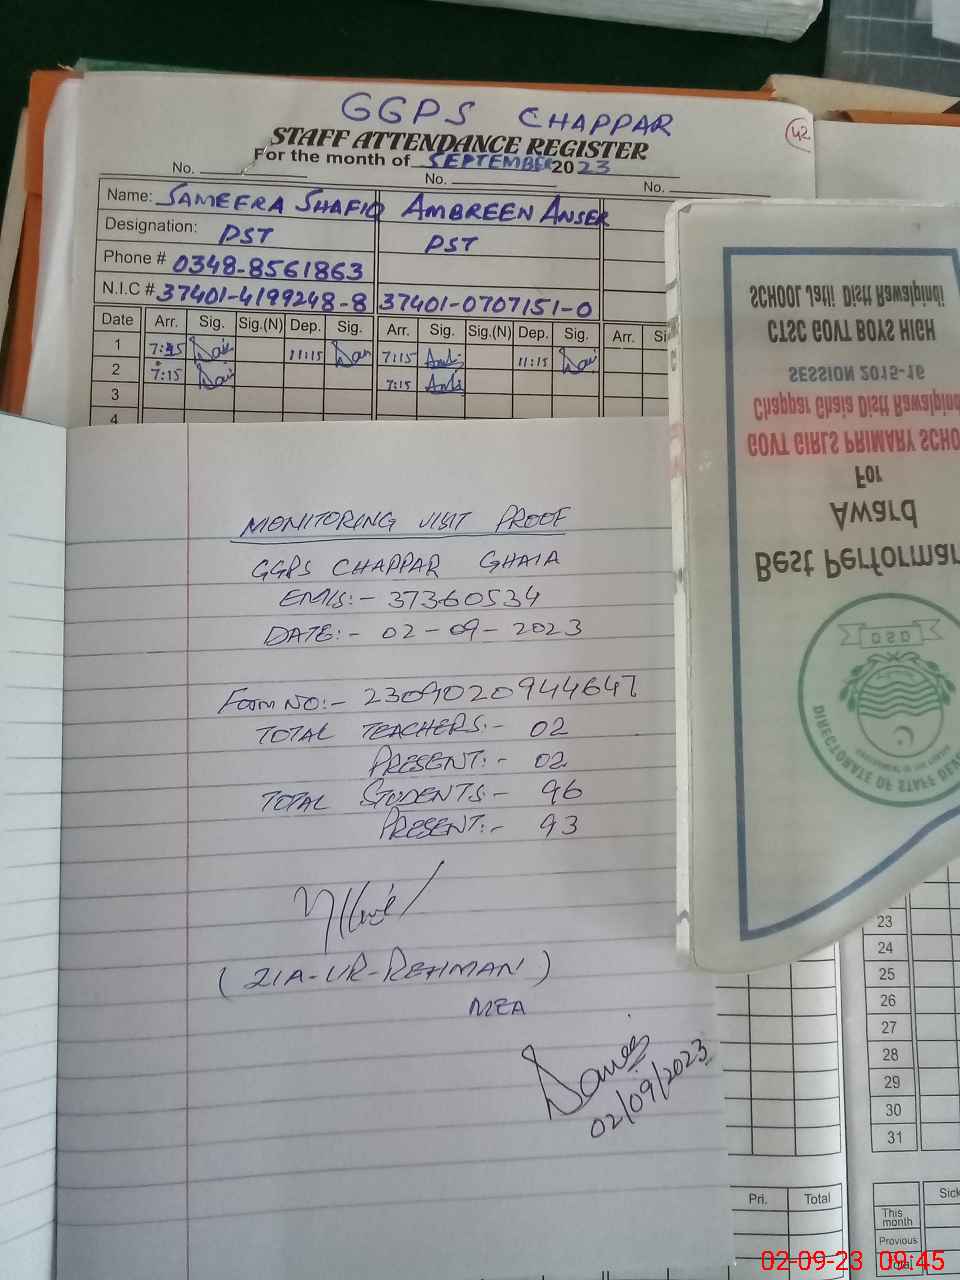 GGPS CHAPPAR
42
STAFF ATTENDANCE REGISTER
For the month of SEPTEMBER 2023
No. No. No.
Name: SAMEERA SHAFIQ AMBREEN ANSER
Designation: PST PST
Phone # 0348-8561863
N.I.C # 37401-4199248-8 37401-0707151-0
Date Arr. Sig. Sig.(N) Dep. Sig. Arr. Sig. Sig.(N) Dep. Sig. Arr.
1 11:15 7:15 11:15
2 7:15 7:15
3
4
MONITORING VISIT PROOF
GGPS CHAPPAR GHAIA
EMIS:- 37360534
DATE:- 02-09-2023
Form NO:- 2309020944647
TOTAL TEACHERS:- 02
PRESENT:- 02
TOTAL STUDENTS:- 96
PRESENT:- 93
(ZIA-UR-REHMAN)
MEA
02/09/2023
SCHOOL Jatli Distt Rawalpindi
CTSC GOVT BOYS HIGH
SESSION 2015-16
Chappar Ghaia Distt Rawalpind
GOVT GIRLS PRIMARY SCHO
For
Award
Best Performan
DSD
DIRECTORATE OF STAFF DEVE
23
24
25
26
27
28
29
30
31
Pri. Total
Sick
This month
Previous
Total
02-09-23 09:45